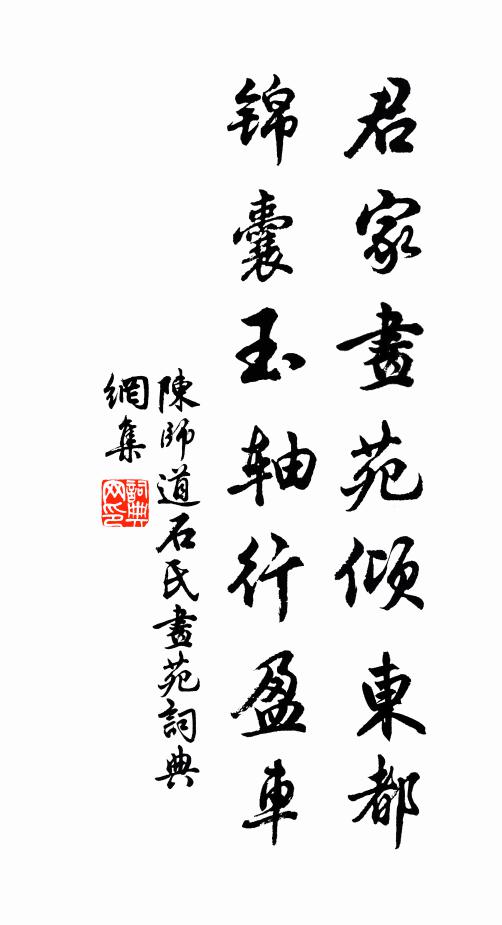 君家畫苑傾東都
錦囊玉轴行盈車
陳師道石氏畫苑詞典
網集
詞典網印